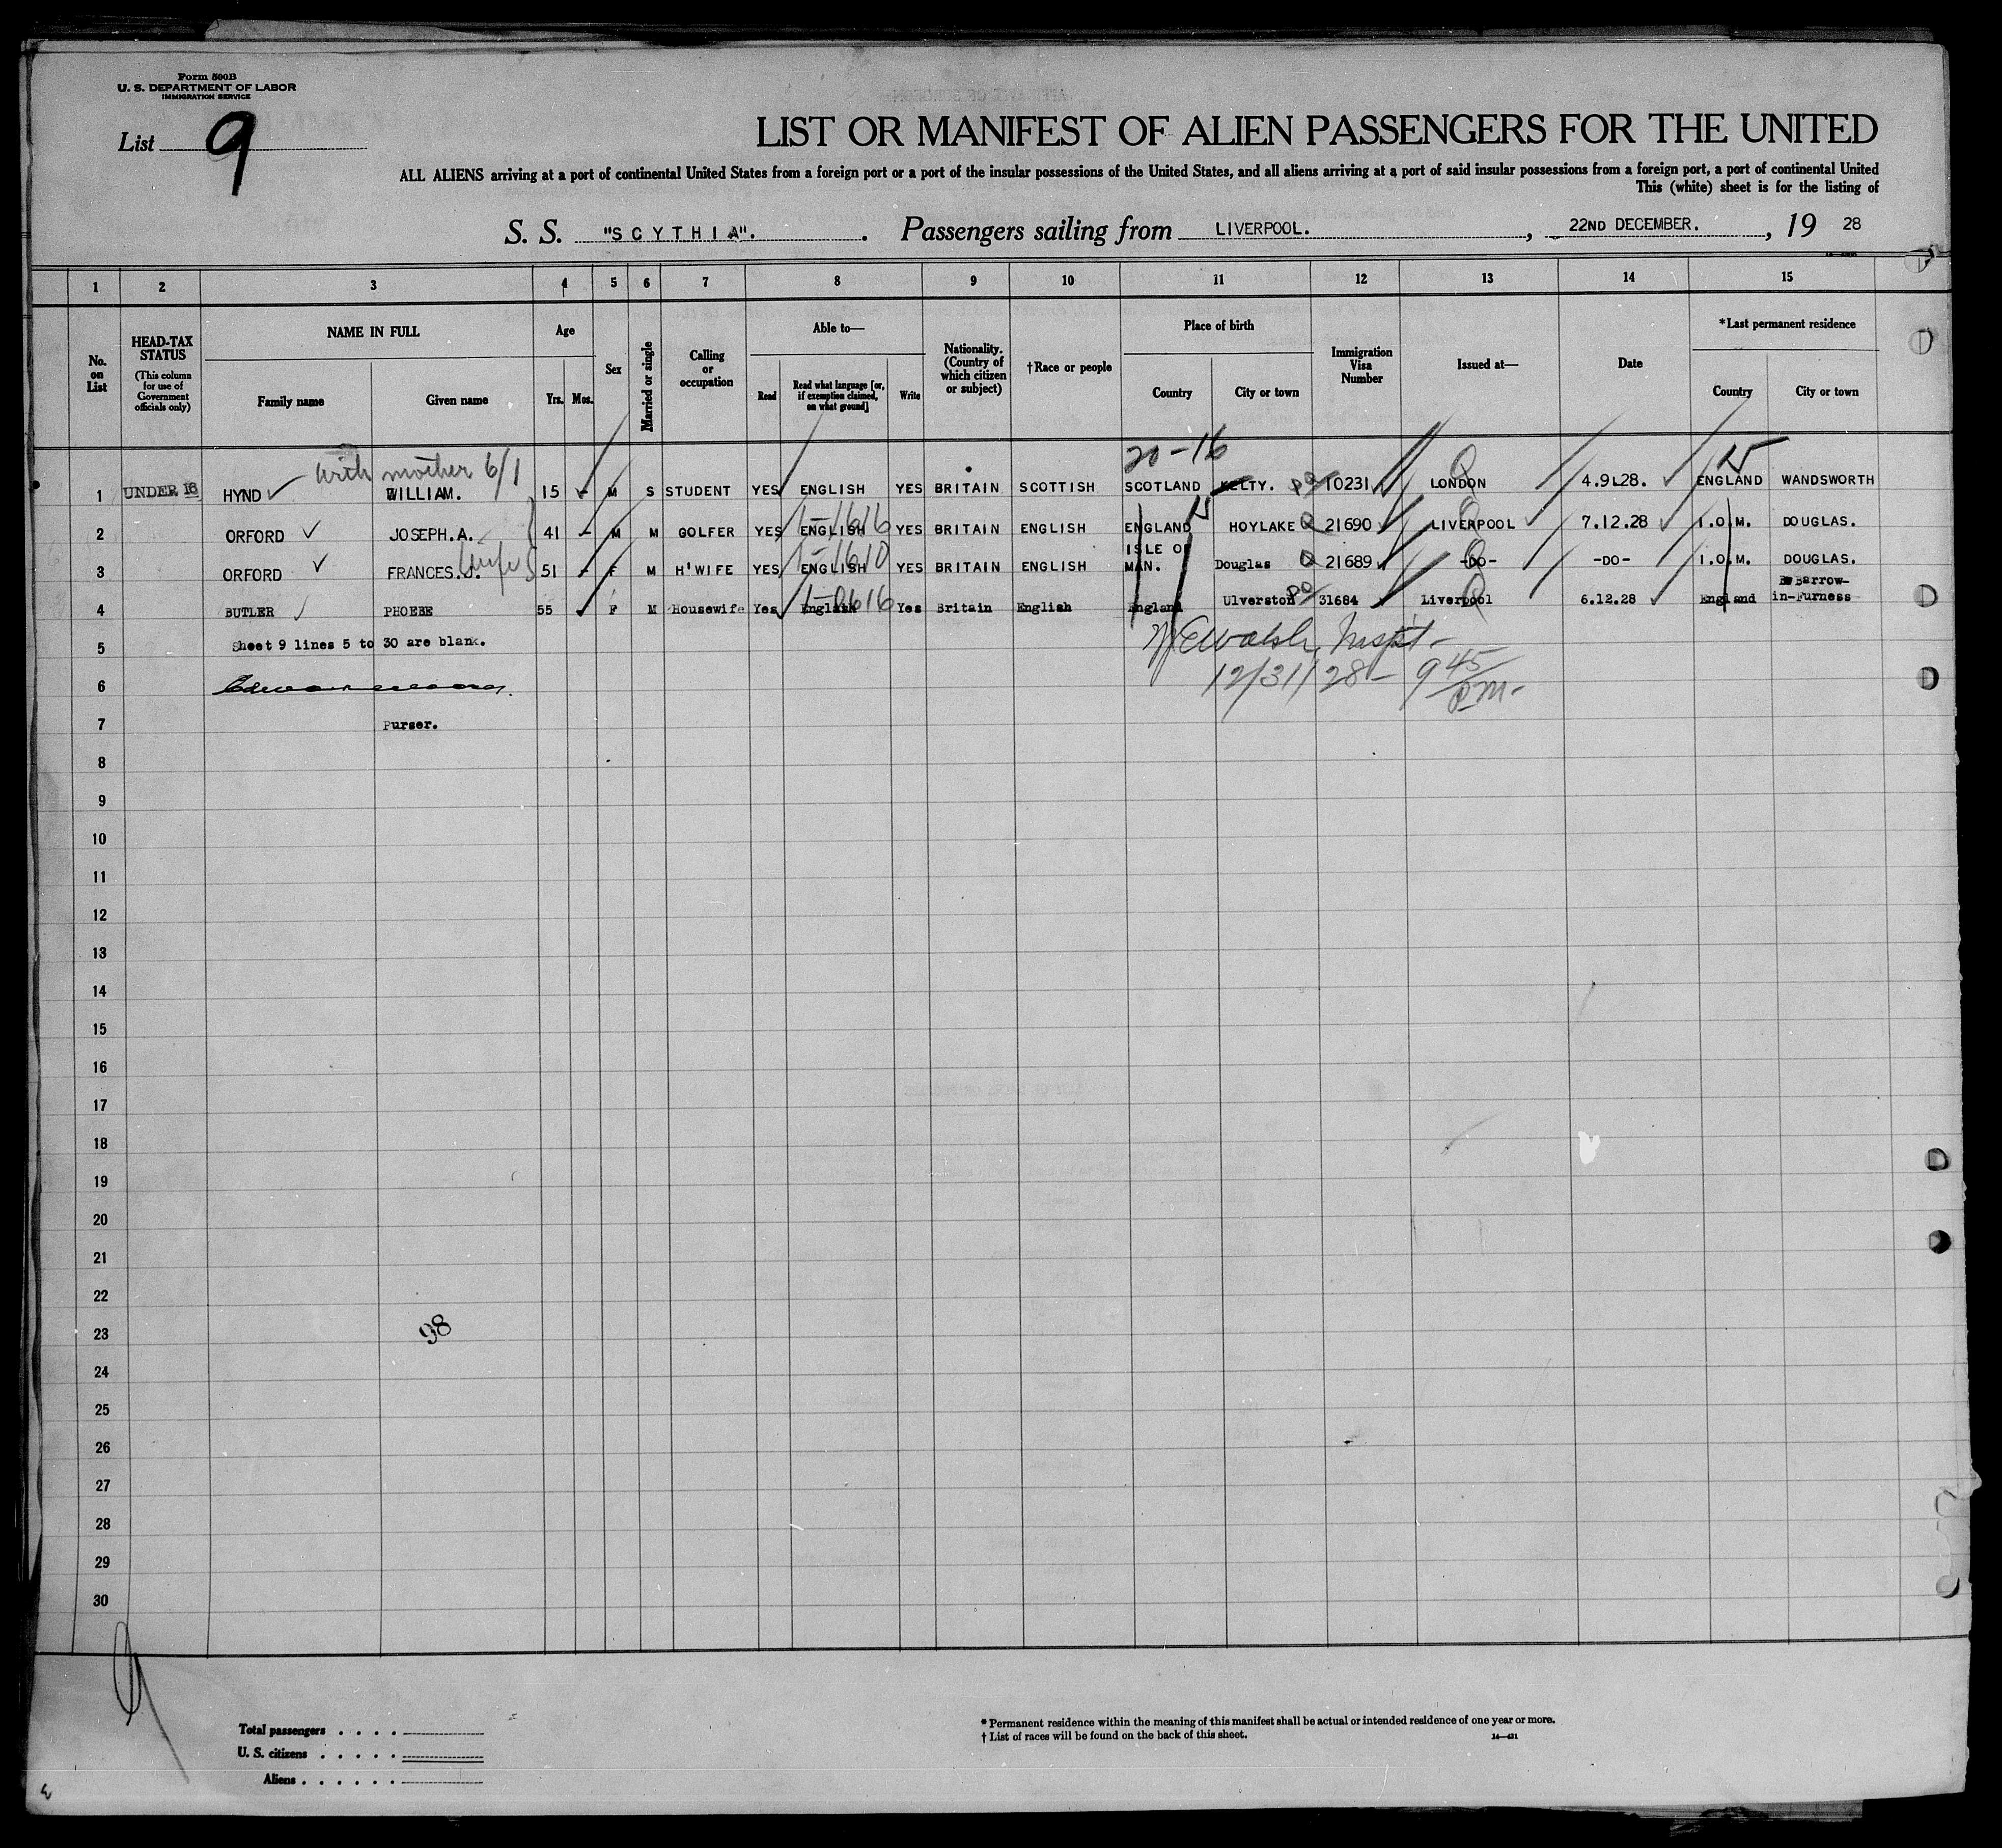 Form 500B
U. S. DEPARTMENT OF LABOR
IMMIGRATION SERVICE
List 9
LIST OR MANIFEST OF ALIEN PASSENGERS FOR THE UNITED
ALL ALIENS arriving at a port of continental United States from a foreign port or a port of the insular possessions of the United States, and all aliens arriving at a port of said insular possessions from a foreign port, a port of continental United
This (white) sheet is for the listing of
S. S. "SCYTHIA". Passengers sailing from LIVERPOOL. , 22ND DECEMBER. , 19 28
1 2 3 4 5 6 7 8 9 10 11 12 13 14 15
No. on List
HEAD-TAX STATUS
(This column for use of Government officials only)
NAME IN FULL
Family name Given name
Age
Yrs. Mos.
Sex
Married or single
Calling or occupation
Able to—
Read Read what language [or, if exemption claimed, on what ground] Write
Nationality. (Country of which citizen or subject)
†Race or people
Place of birth
Country City or town
Immigration Visa Number
Issued at—
Date
*Last permanent residence
Country City or town
with mother 6/1
20-16
1 UNDER 16 HYND WILLIAM. 15 - M S STUDENT YES ENGLISH YES BRITAIN SCOTTISH SCOTLAND KELTY. 10231 LONDON 4.9.28. ENGLAND WANDSWORTH
2 ORFORD JOSEPH.A. 41 - M M GOLFER YES ENGLISH YES BRITAIN ENGLISH ENGLAND HOYLAKE Q 21690 LIVERPOOL 7.12.28 I.O.M. DOUGLAS.
3 ORFORD FRANCES.J. wife 51 - F M H'WIFE YES ENGLISH YES BRITAIN ENGLISH ISLE OF MAN. Douglas Q 21689 -DO- -DO- I.O.M. DOUGLAS.
4 BUTLER PHOEBE 55 F M Housewife Yes English Yes Britain English England Ulverston 31684 Liverpool 6.12.28 England Barrow-in-Furness
5 Sheet 9 lines 5 to 30 are blank.
12/31/28 - 9 45 P.M.
6
7 Purser.
8
9
10
11
12
13
14
15
16
17
18
19
20
21
22
23
98
24
25
26
27
28
29
30
9
Total passengers . . . .
U. S. citizens . . . . .
Aliens . . . . . .
* Permanent residence within the meaning of this manifest shall be actual or intended residence of one year or more.
† List of races will be found on the back of this sheet.